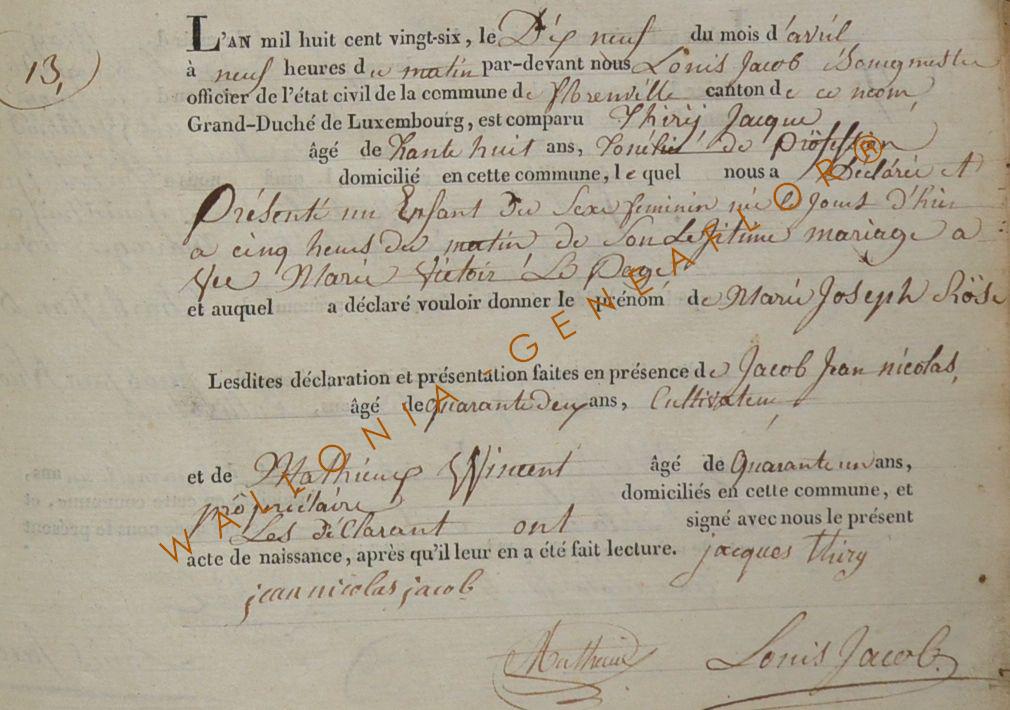 13,
L'AN mil huit cent vingt-six, le Dix neuf du mois d'avril
à neuf heures du matin par-devant nous Louis Jacob Bourgmestre
officier de l'état civil de la commune de florenville canton de ce nom
Grand-Duché de Luxembourg, est comparu Thiry Jacque
âgé de trante huit ans, de profession
domicilié en cette commune, lequel nous a Déclarée et
Présenté un Enfant du Sexe feminin née le Jours d'hier
a cinq heurs du matin de Son Legitime mariage a
vec Marie Victoir Le Page
et auquel a déclaré vouloir donner le prénom de Marie Joseph Rose
Lesdites déclaration et présentation faites en présence de Jacob Jean nicolas,
âgé de quarante deux ans, Cultivateur
et de Mathieux Vincent âgé de Quarante un ans,
propriétaire domiciliés en cette commune, et
Les déclarant ont signé avec nous le présent
acte de naissance, après qu'il leur en a été fait lecture. jacques thiry
jean nicolas jacob
Mathieu Louis Jacob
WALLONIA-GENEAFLOR®